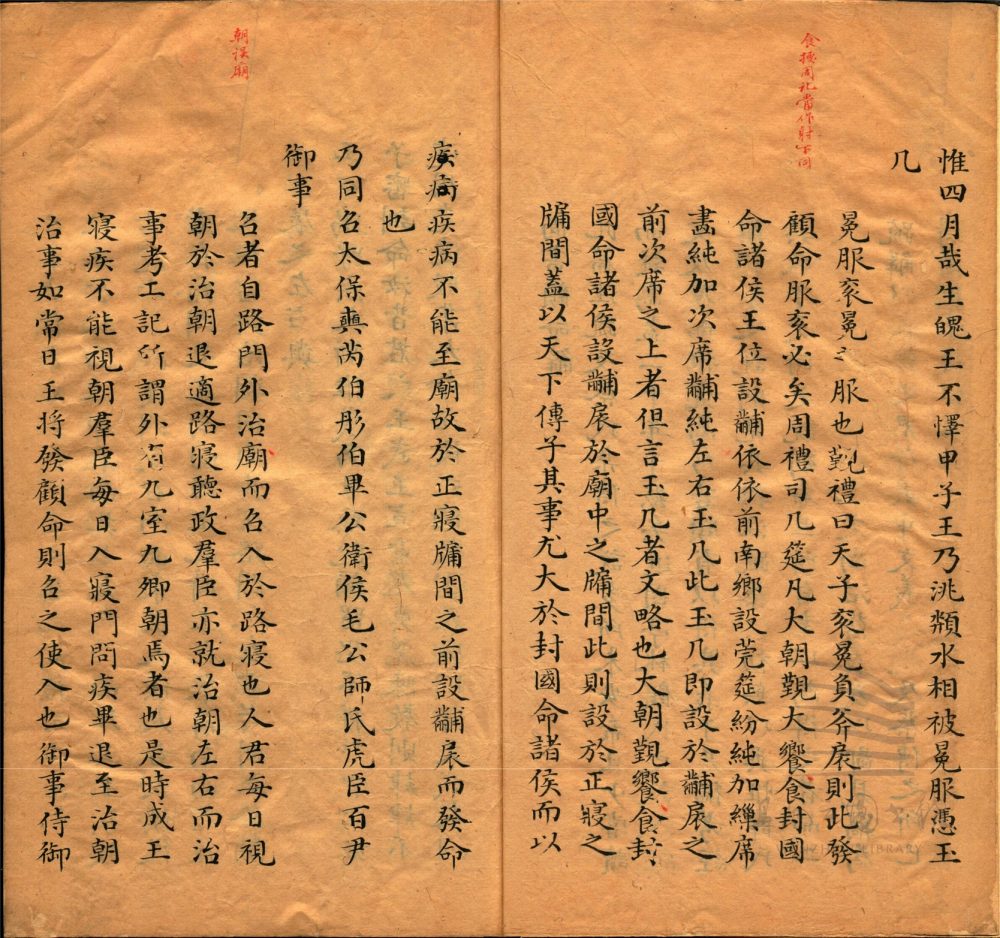 食據周礼當作射下同
惟四月哉生魄王不懌甲子王乃洮頮水相被冕服憑玉
几
冕服袞冕之服也覲禮曰天子袞冕負斧扆則此發
顧命服袞必矣周禮司几筵凡大朝覲大饗食封國
命諸侯王位設黼依依前南鄉設莞筵紛純加繅席
畫純加次席黼純左右玉几此玉几即設於黼扆之
前次席之上者但言玉几者文略也大朝覲饗食封
國命諸侯設黼扆於廟中之牖間此則設於正寢之
牖間蓋以天下傳子其事尤大於封國命諸侯而以
朝誤廟
疾病疾病不能至廟故於正寢牖間之前設黼扆而發命
也
乃同召太保奭芮伯彤伯畢公衛侯毛公師氏虎臣百尹
御事
召者自路門外治廟而召入於路寢也人君每日視
朝於治朝退適路寢聽政羣臣亦就治朝左右而治
事考工記所謂外有九室九卿朝焉者也是時成王
寢疾不能視朝羣臣每日入寢門問疾畢退至治朝
治事如常日王將發顧命則召之使入也御事侍御
LIBRARY